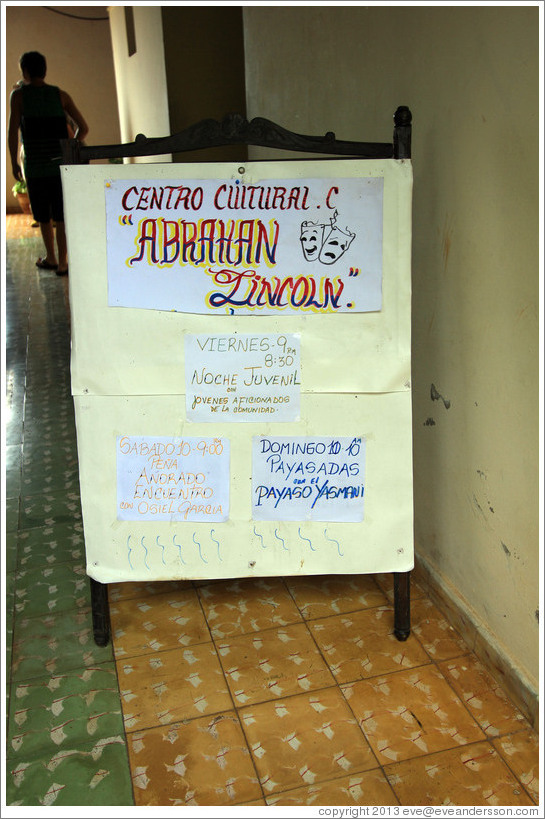 CENTRO CULTURAL. C
"ABRAHAN
LINCOLN."
VIERNES. 9 PM
8:30
NOCHE JUVENIL
CON
JOVENES AFICIONADOS
DE LA COMUNIDAD.
SABADO 10-9:00
PEÑA
AÑORADO
ENCUENTRO
CON OSIEL GARCIA
DOMINGO 10 AM
PAYASADAS
POR EL
PAYASO YASMANI
copyright 2013 eve@eveandersson.com